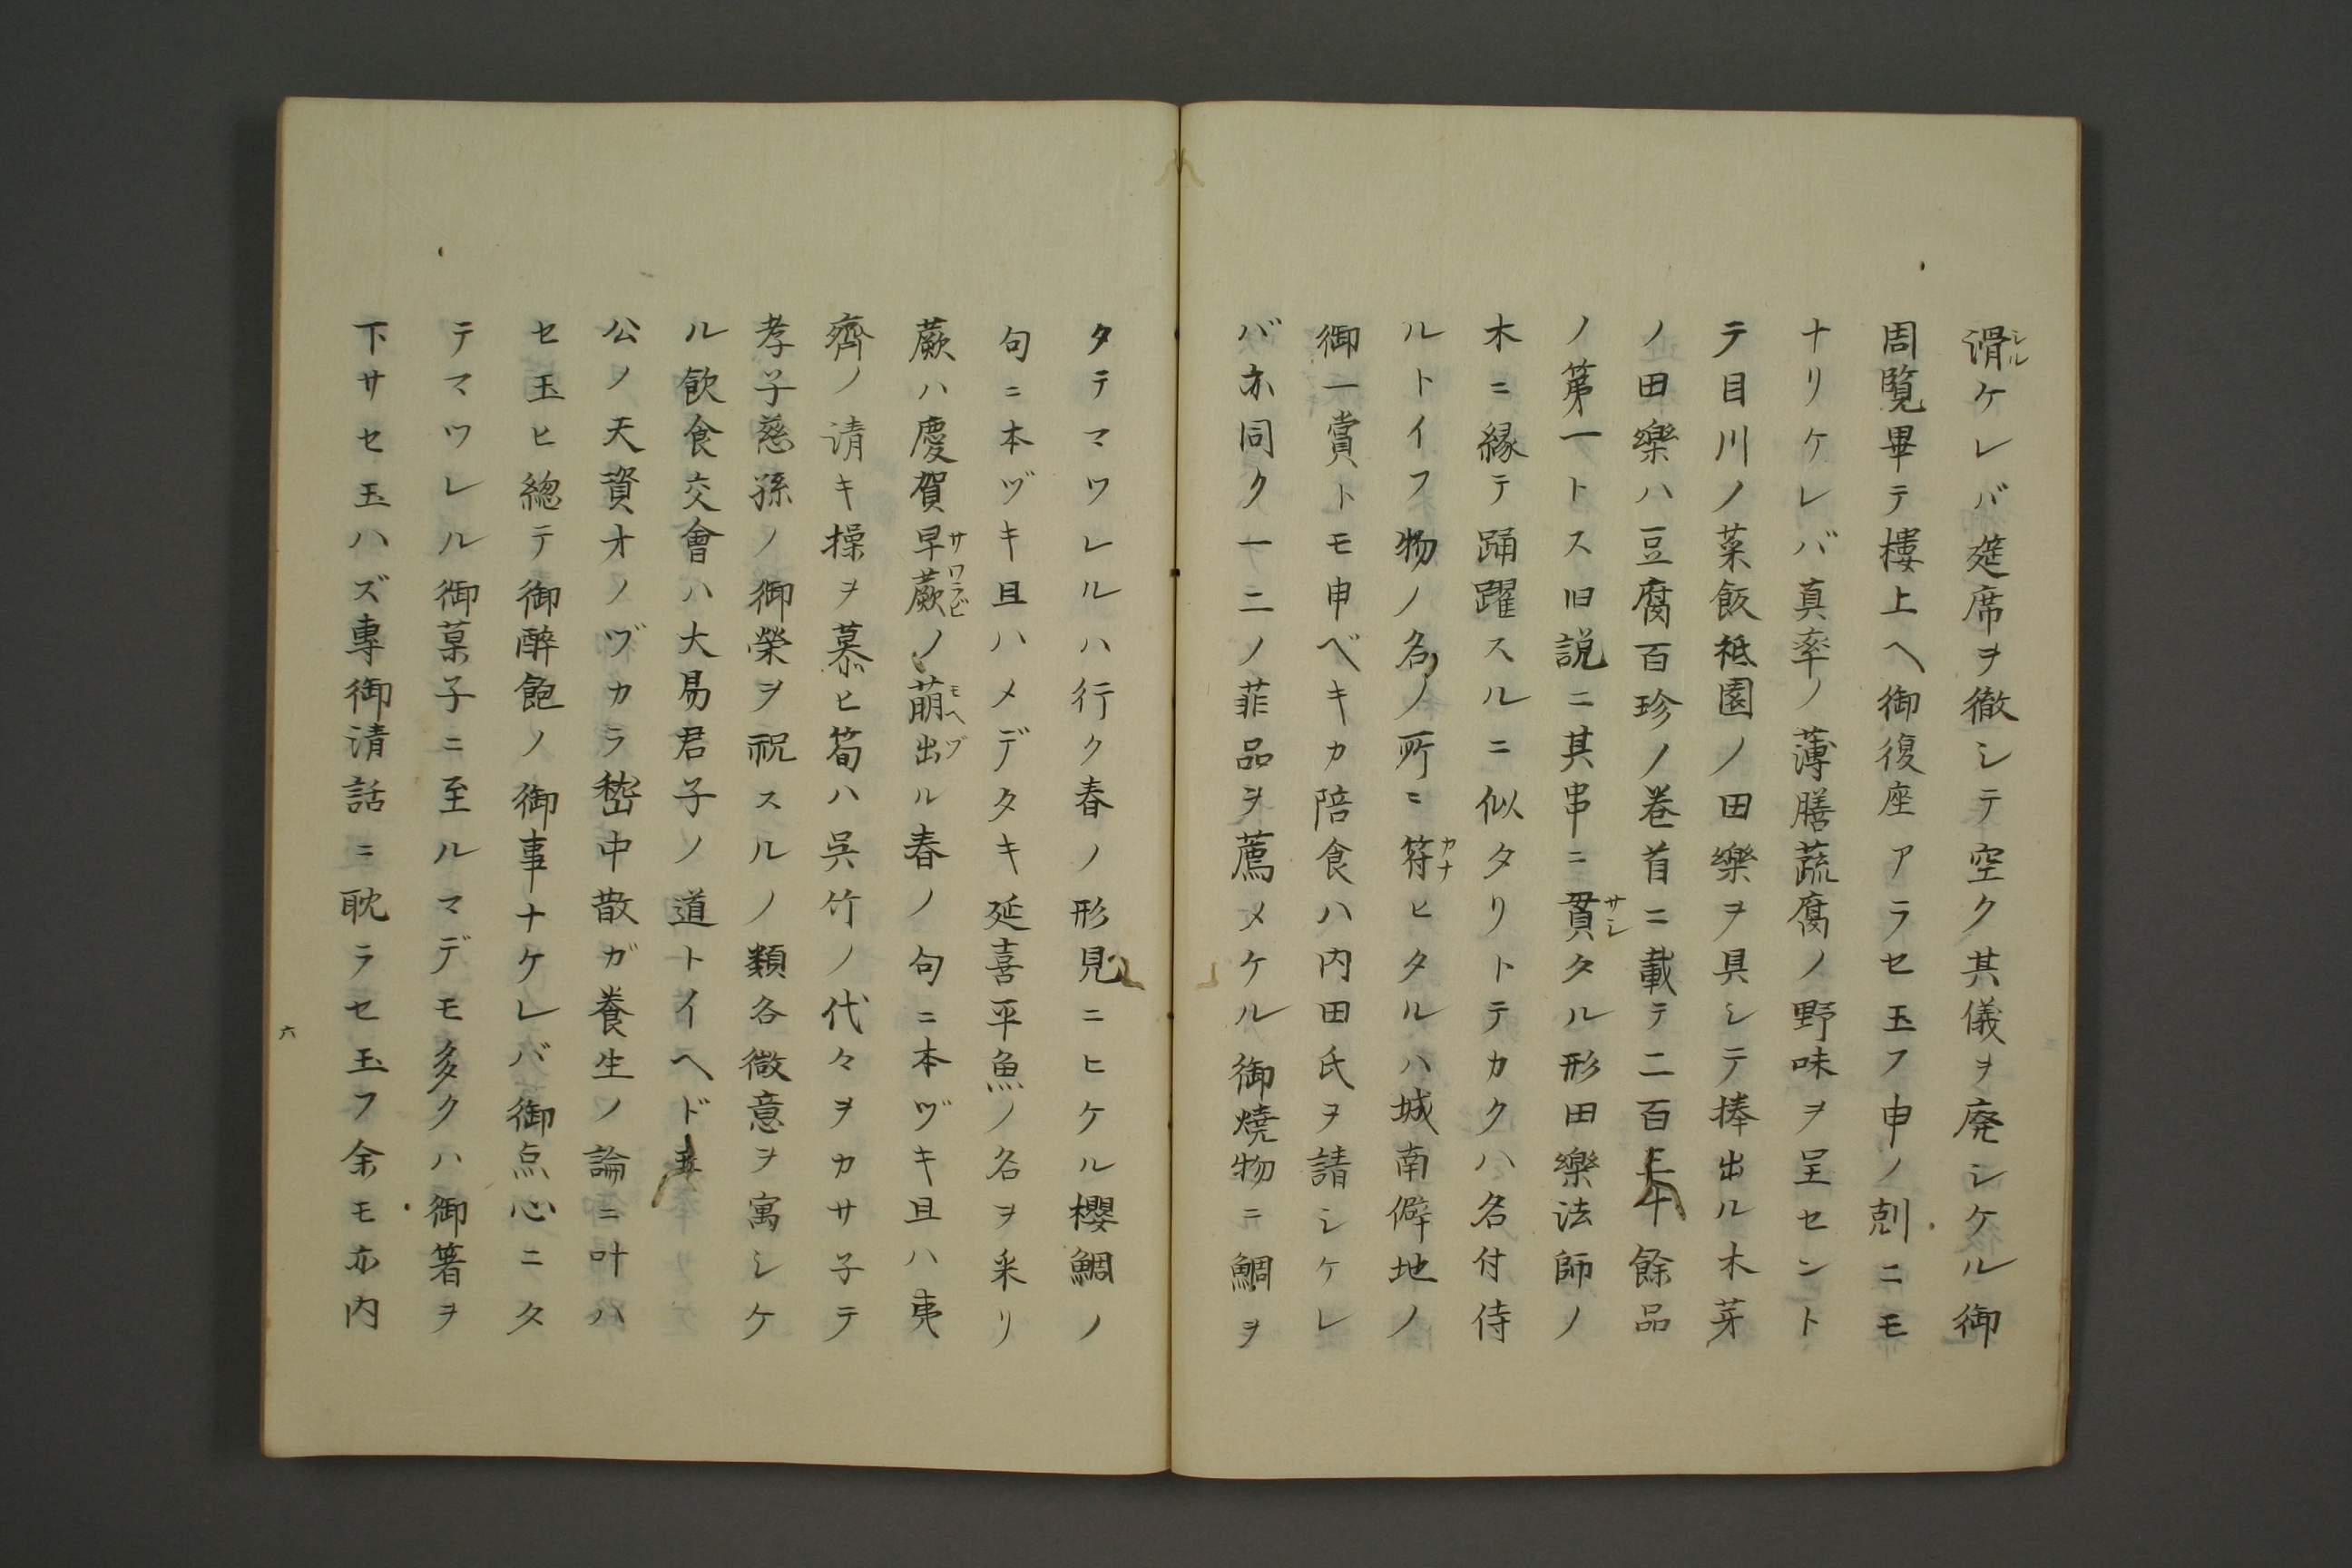 滑ケレバ筵席ヲ徹シテ空ク其儀ヲ廃シケル御
周覧畢テ樓上ヘ御復座アラセ玉フ申ノ剋ニモ
ナリケレバ真率ノ薄膳蔬腐ノ野味ヲ呈セント
テ目川ノ菜飯祗園ノ田樂ヲ具シテ捧出ル木芽
ノ田樂ハ豆腐百珍ノ巻首ニ載テ二百餘品
ノ第一トス旧説ニ其串ニ貫タル形田樂法師ノ
木ニ縁テ踊躍スルニ似タリトテカクハ名付侍
ルトイフ物ノ名ノ所ニ符ヒタルハ城南僻地ノ
御一賞トモ申ベキカ陪食ハ内田氏ヲ請シケレ
バ亦同ク一二ノ菲品ヲ薦メケル御焼物ニ鯛ヲ
タテマツレルハ行ク春ノ形見ニヒケル櫻鯛ノ
句ニ本ヅキ且ハメデタキ延喜平魚ノ名ヲ采リ
蕨ハ慶賀早蕨ノ萠出ル春ノ句ニ本ヅキ且ハ夷
齊ノ清キ操ヲ慕ヒ筍ハ呉竹ノ代々ヲカサ子テ
孝子慈孫ノ御榮ヲ祝スルノ類各微意ヲ寓シケ
ル飲食交會ハ大易君子ノ道トイヘド
公ノ天資オノヅカラ嵆中散ガ養生ノ論ニ叶ハ
セ玉ヒ總テ御醉飽ノ御事ナケレバ御点心ニタ
テマツレル御菓子ニ至ルマデモ多クハ御箸ヲ
下サセ玉ハズ專御清話ニ耽ラセ玉フ余モ亦内
六
シル
サシ
カナ
サワラビ
モヘヅ